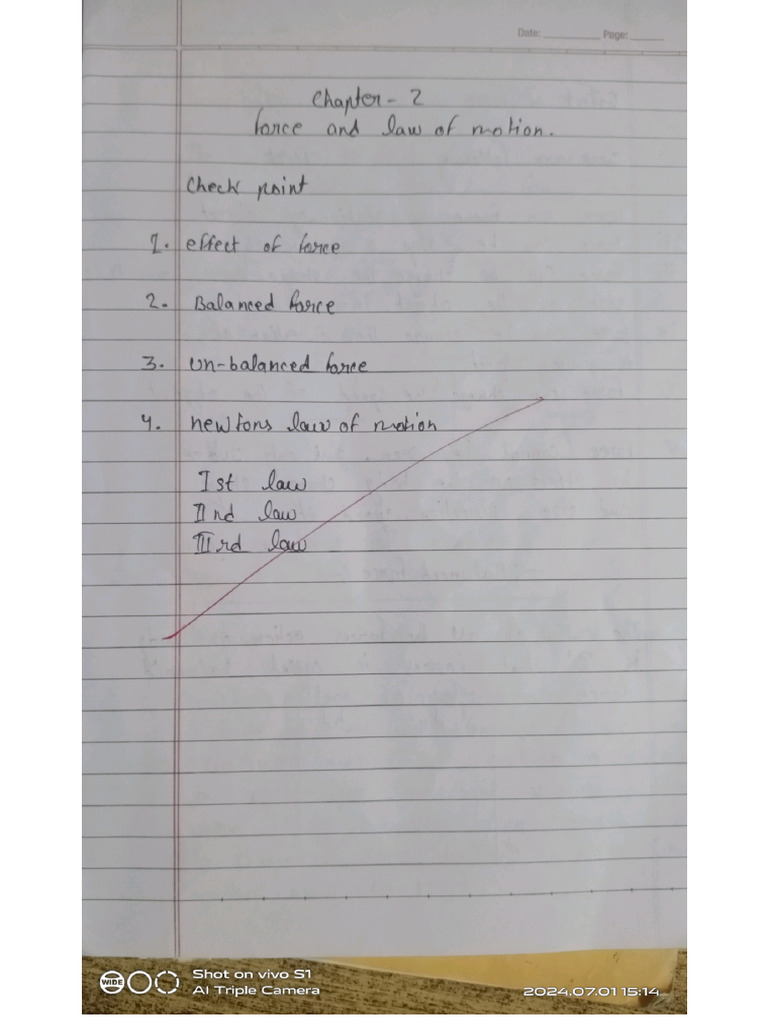 Date: __________ Page: ______
Chapter - 2
force and law of motion.
Check point
1. effect of force
2. Balanced force
3. Un-balanced force
4. newtons law of motion
Ist law
IInd law
IIIrd law
WIDE
Shot on vivo S1
AI Triple Camera
2024.07.01 15:14